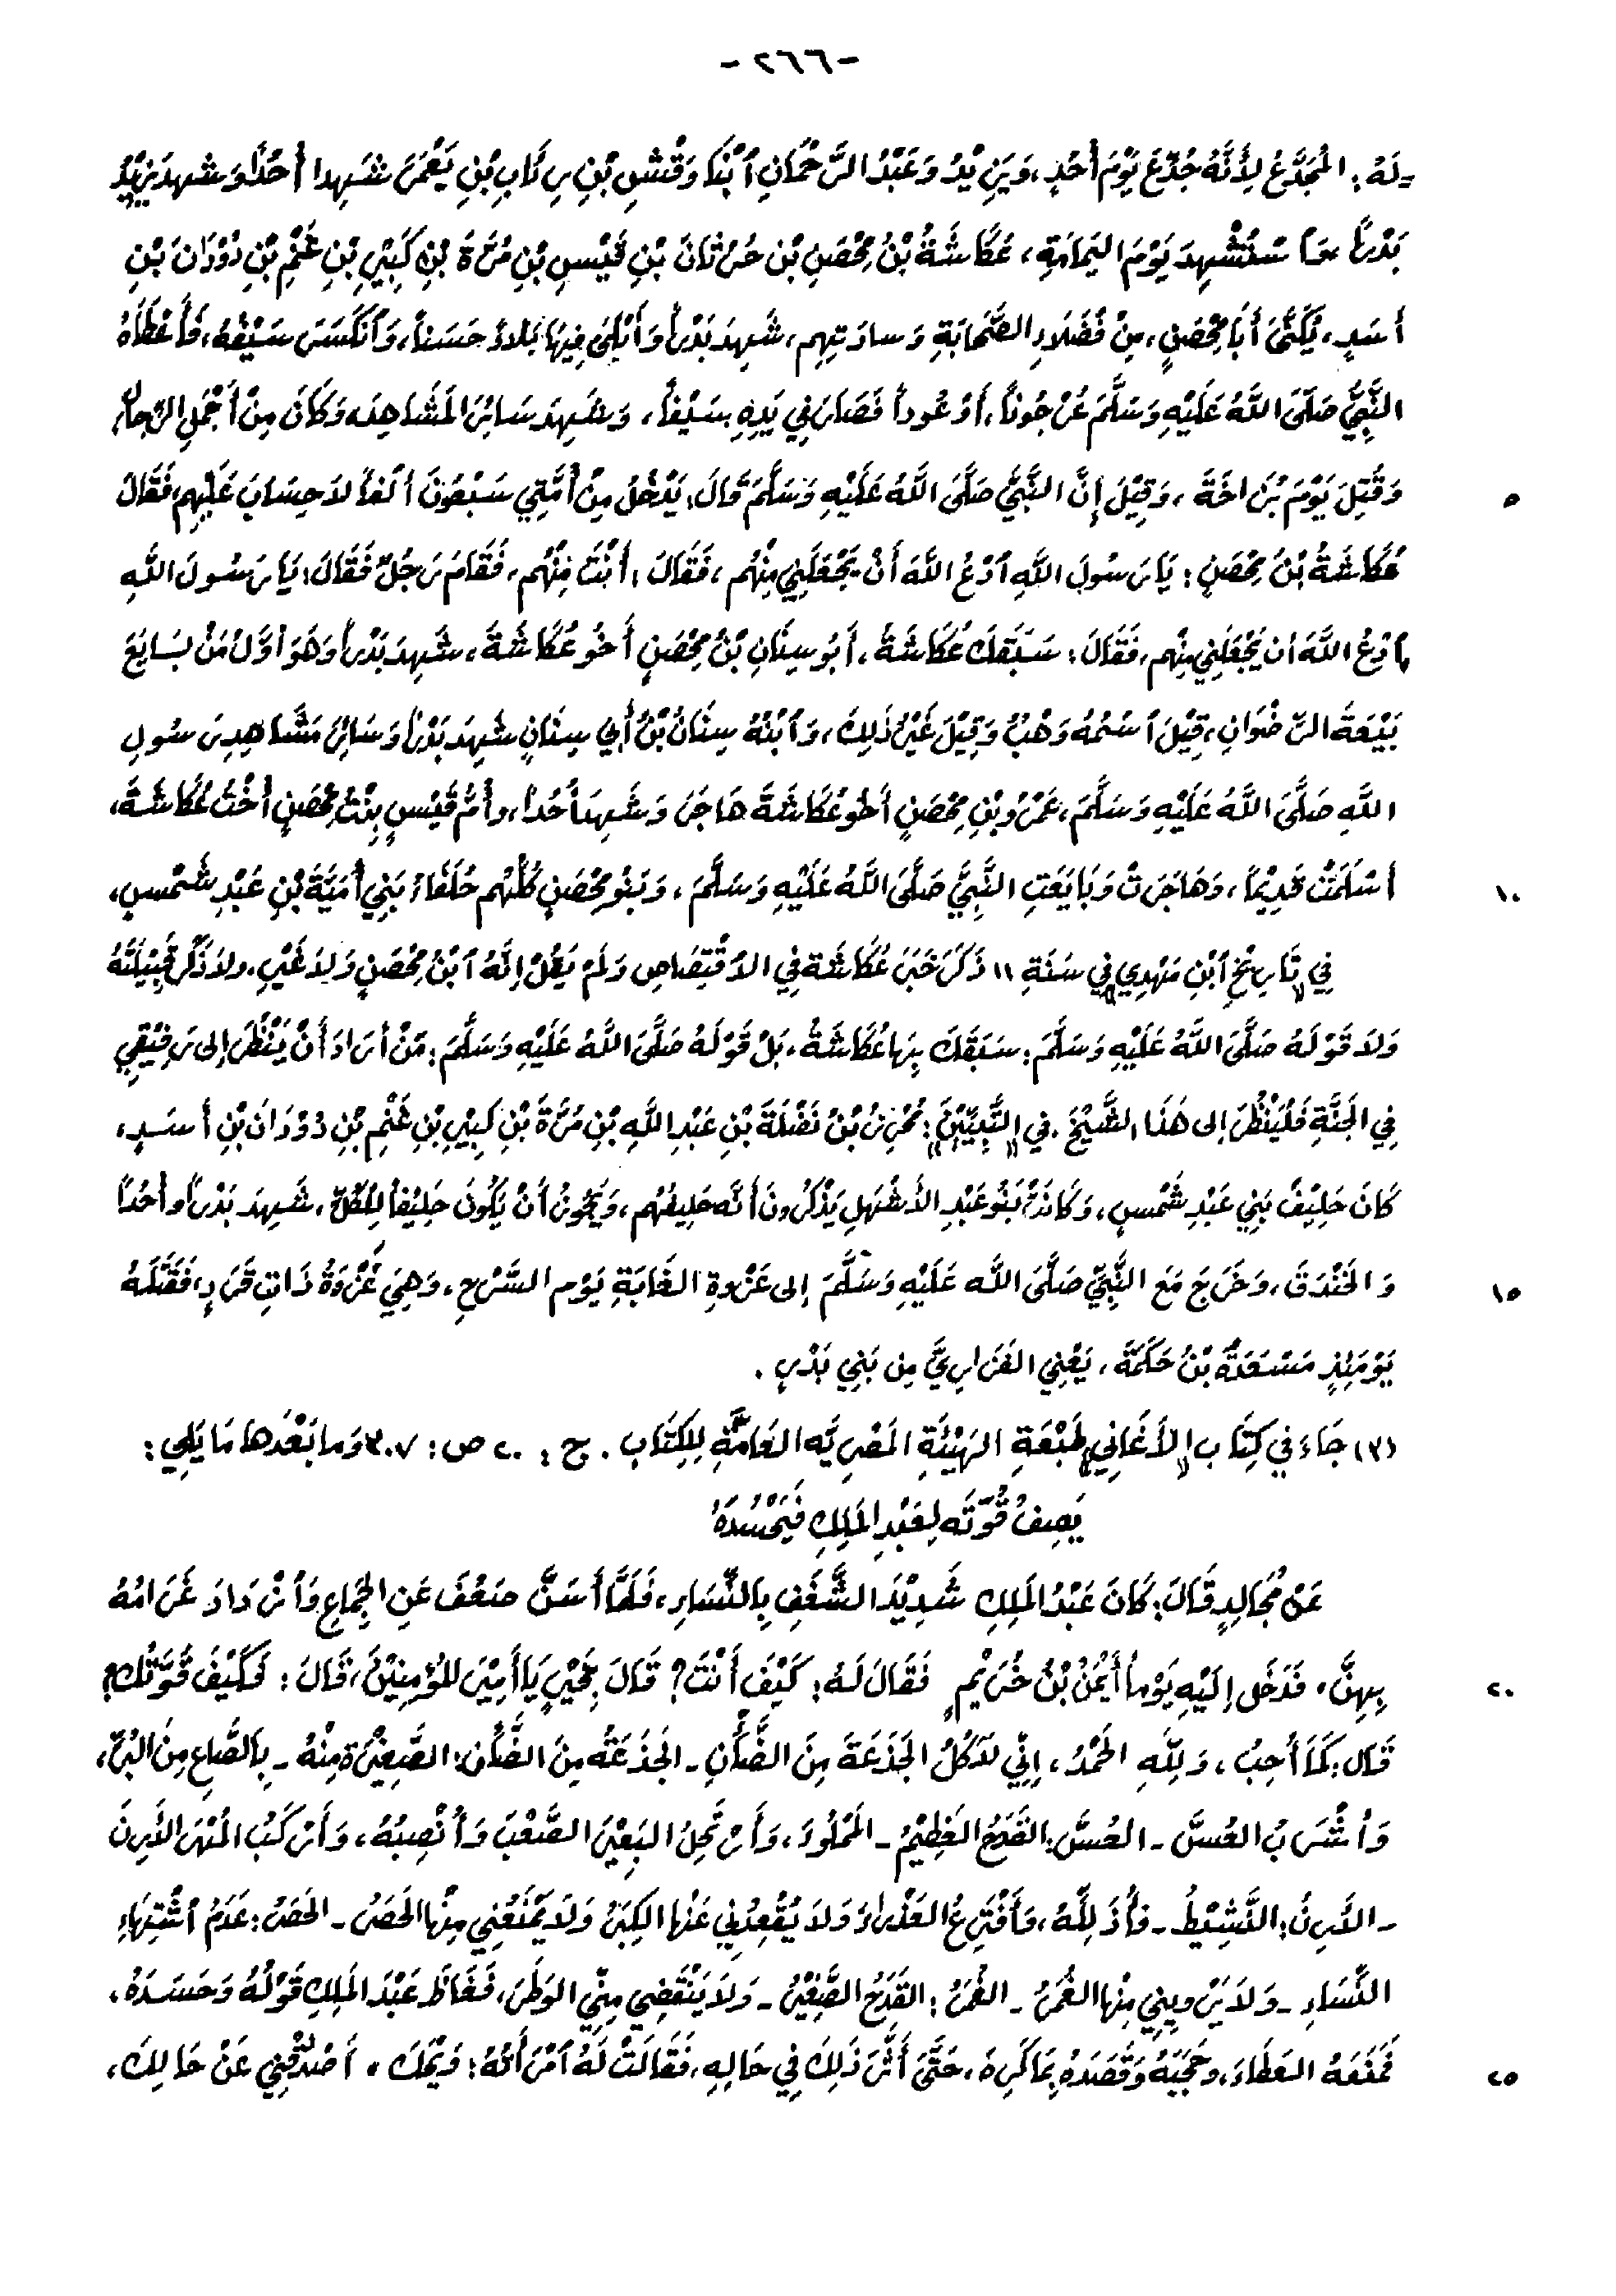 -٢٦٦-
=لَهُ: المُجَدَّعُ لِأَنَّهُ جُدِّعَ يَوْمَ أُحُدٍ، وَيَزِيْدُ وَعَبْدُ الرَّحْمَانِ ٱبْنَا وَقْشِ بْنِ رِئَابِ بْنِ يَعْمَرَ شَهِدا أُحُداً وَشهدَ يَزِيْدُ
بَدْراً وٱسْتُشْهِدَ يَوْمَ اليَمَامَةِ، عُكَّاشَةُ بْنُ مِحْصَنِ بْنِ حُرْثَانَ بْنِ قَيْسِ بْنِ مُرَّةَ بْنِ كَبِيْرِ بْنِ غَنْمِ بْنِ دُوْدَانَ بْنِ
أَسَدٍ، يُكَنَّى أَبَا مِحْصَنٍ، مِنْ فُضَلَاءِ الصَّحَابَةِ وَسادَتِهِم، شَهِدَ بَدْراً وَأَبْلَى فِيْهَا بَلاءً حَسَناً، وَٱنْكَسَرَ سَيْفُهُ، فَأَعْطَاهُ
النَّبِيُّ صَلَّى اللَّهُ عَلَيْهِ وَسَلَّمَ عُرْجُوناً، أَوْ عُوداً فَصَارَ فِي يَدِهِ سَيْفاً، وَشَهِدَ سَائِرَ المَشَاهِدِ وَكَانَ مِنْ أَجْمَلِ الرِّجالِ
وَقُتِلَ يَوْمَ بُزَاخَةَ، وَقِيْلَ إِنَّ النَّبِيَّ صَلَّى اللَّهُ عَلَيْهِ وَسَلَّمَ قَالَ: يَدْخُلُ مِنْ أُمَّتِي سَبْعُونَ أَلْفاً لاَ حِسَابَ عَلَيْهِم، فَقَالَ
٥
عُكَّاشَةُ بْنُ مِحْصَنٍ: يَا رَسُولَ اللَّهِ ٱدْعُ اللَّهَ أَنْ يَجْعَلَنِي مِنْهُم، فَقَالَ: أَنْتَ مِنْهُم، فَقَامَ رَجُلٌ فَقَالَ: يَا رَسُولَ اللَّهِ
ٱدْعُ اللَّهَ أن يَجْعَلَنِي مِنْهم، فَقَالَ: سَبَقَكَ عُكَاشَةُ، أَبُو سِنَانِ بْنُ مِحْصَنٍ أَخُو عُكَاشَةَ، شَهِدَ بَدْراً وَهُوَ أوَّلُ مَنْ بَايَعَ
بَيْعَةَ الرِّضْوَانِ، قِيْلَ ٱسْمُهُ وَهْبٌ وَقِيْلَ غَيْرُ ذَلِكَ، وَٱبْنُهُ سِنَانُ بْنُ أَبِي سِنَانٍ شَهِدَ بَدْراً وَسَائِرَ مَشَاهِدِ رَسُولِ
اللَّهِ صَلَّى اللَّهُ عَلَيْهِ وَسَلَّمَ، عَمْرُو بْنِ مِحْصَنٍ أَخُو عُكَاشَةَ هَاجَرَ وَشَهِدَ أُحُداً، وأُمُّ قَيْسٍ بِنْتُ مِحْصَنٍ أُخْتُ عُكَاشَةَ،
أَسْلَمَتْ قَدِيْمَاً، وَهَاجَرَتْ وَبَايَعَتِ النَّبِيَّ صَلَّى اللَّهُ عَلَيْهِ وَسَلَّمَ، وَبَنُو مِحْصَنٍ كُلُّهُم حُلَفَاءُ بَنِي أُمَيَّةَ بْنِ عَبْدِ شَمْسٍ،
١٠
فِي «تَارِيْخِ ٱبْنِ مَهْدِي» فِي سَنَةِ ١١ ذَكَرَ خَبَرَ عُكَّاشَة فِي الاقْتِصَاصِ وَلَمْ يَقُلْ إِنَّهُ ٱبْنُ مِحْصَنٍ وَلاَ غَيْرِهِ، ولا ذَكَرَ قَبِيْلَتَهُ
وَلاَ قَوْلَهُ صَلَّى اللَّهُ عَلَيْهِ وَسَلَّمَ: سَبَقَكَ بِهَا عُكَّاشَةُ، بَلْ قَوْلَهُ صَلَّى اللَّهُ عَلَيْهِ وَسَلَّمَ: مَنْ أَرَادَ أَنْ يَنْظُرَ إلى رَفِيْقِي
فِي الجَنَّةِ فَلْيَنْظُرْ إلى هَذَا الشَّيْخِ. في «التَّبِيِيْنِ»: مُحْرِزُ بْنُ نَضْلَةَ بْنِ عَبْدِ اللَّهِ بْنِ مُرَّةَ بْنِ كَبِيْرِ بْنِ غَنْمِ بْنِ دُوْدَانَ بْنِ أَسَدٍ،
كَانَ حَلِيْفَ بَنِي عَبْدِ شَمْسٍ، وَكَانَتْ بَنُو عَبْدِ الأَشْهَلِ يَذْكُرُونَ أَنَّه حَلِيفُهُم، وَيَجُوزُ أَنْ يَكُونَ حَلِيْفاً لِلكُلِّ، شَهِدَ بَدْراً وأُحُداً
وَالخَنْدَقَ، وَخَرَجَ مَعَ النَّبِيِّ صَلَّى اللَّه عَلَيْهِ وَسَلَّمَ إلى غَزْوةِ الغَابَةِ يَوْم السَّرْحِ، وَهِيَ غَزْوَةُ ذَاتِ قَرَدٍ، فَقَتَلَهُ
١٥
يَوْمَئِذٍ مَسْعَدَةُ بْنُ حَكَمَةَ، يَعْنِي الفَزَارِيَّ مِن بَنِي بَدْرٍ.
(٣) جَاءَ فِي كِتَابِ «الأَغَانِي» طَبْعَةِ الهَيْئَةِ المَصْرِيَّه العَامَّةِ لِلكِتَابِ. ج: ٢٠ ص: ٣٠٧ وَما بَعْدَها مَا يَلِي:
يَصِفُ قُوَّتَه لِعَبْدِ المَلِكِ فَيَحْسُدَهُ
عَنْ مُجَالِدٍ قَالَ: كَانَ عَبْدُ المَلِكِ شَدِيْدَ الشَّغَفِ بِالنِّسَاءِ، فَلَمَّا أَسَنَّ ضَعُفَ عَنِ الجِمَاعِ وَٱزْدَادَ غَرَامُهُ
بِهِنَّ، فَدَخَل إلَيْهِ يَوْماً أَيْمَنُ بْنُ خُرَيْمٍ فَقَالَ لَهُ: كَيْفَ أَنْتَ؟ قَالَ بِخَيْرٍ يَا أَمِيْرَ المُؤْمِنِيْنَ، قَالَ: فَكَيْفَ قُوَّتُك؟
٢٠
قَال: كَمَا أُحِبُّ، وَلِلَّهِ الحَمْدُ، إِنِّي لآكُلُ الجَذَعَةَ مِنَ الضَّأْنِ - الجَذَعَةُ مِنَ الضَّأْنِ: الصَّغِيْرَة مِنْهُ - بِالصَّاعِ مِنَ البُرِّ،
وَأَشْرَبُ العُسَّ - العُسَّ: القَدَحُ العَظِيْمُ - المَمْلُوءَ، وَأَرْتَحِلُ البَعِيْرَ الصَّعْبَ وَأُنْصِبُهُ، وَأَرْكَبُ المُهْرَ الأَرِنَ
- الأَرِنُ: النَّشِيْطُ - فأُذَلِّلُهُ، وَأَفْتَرِعُ العَذْرَاءَ وَلاَ يُقْعِدُنِي عَنْهَا الكِبَرُ وَلاَ يَمْنَعُنِي مِنْها الحَصَرُ - الحَصَرُ: عَدَمُ ٱشْتِهَاءِ
النِّسَاءِ - وَلاَ يَرْوِيني مِنْها الغُمَرُ - الغُمَرُ: القَدَحُ الصَّغِيْرُ - وَلاَ يَنْقَضِي مِنِّي الوَطَرَ، فَغَاظَ عَبْدَ المَلِكِ قَوْلُهُ وَحَسَدَهُ،
فَمَنَعَهُ العَطَاءَ، وحَجَبَهُ وَقَصَدَهُ بِمَا كَرِهَ، حَتَّى أَثَّرَ ذَلِكَ فِي حَالِهِ، فَقَالَتْ لَهُ ٱمْرَأَتُهُ: وَيْحَكَ، أَصْدُقْنِي عَنْ حَالِكَ،
٢٥